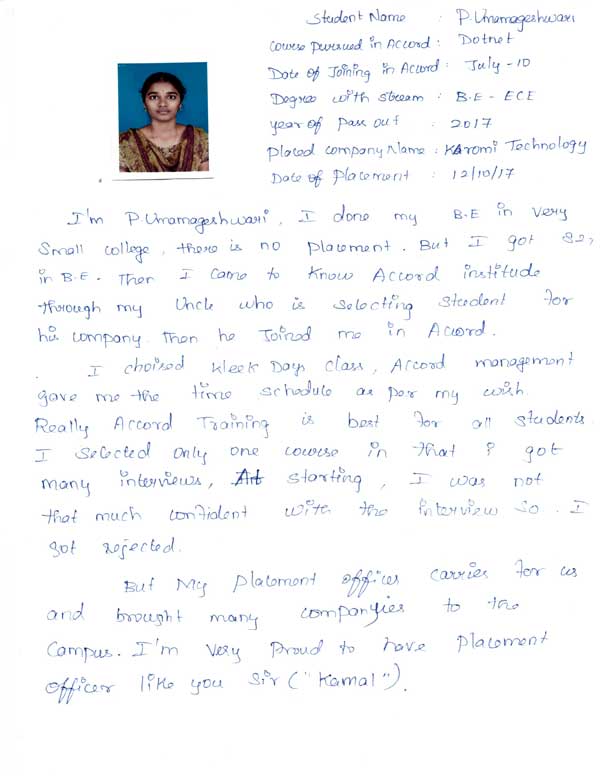 Student Name : P.Umamageshwari
Course pursued in Accord : Dotnet
Date of Joining in Accord : July - 10
Degree with stream : B.E - ECE
year of Pass out : 2017
Placed Company Name : Karomi Technology
Date of Placement : 12/10/17
I'm P.Umamageshwari, I done my B.E in very
Small college, there is no placement. But I got 82%
in B.E. Then I came to know Accord institude
through my Uncle who is selecting student for
his company. Then he Joined me in Accord.
I choised Week Days class, Accord management
gave me the time schedule as per my wish.
Really Accord Training is best for all students.
I selected only one course in that i got
many interviews, starting, I was not
that much confident with the interview so. I
got rejected.
But My placement officer carries for us
and brought many companyies to the
campus. I'm very proud to have placement
officer like you sir ("Kamal").